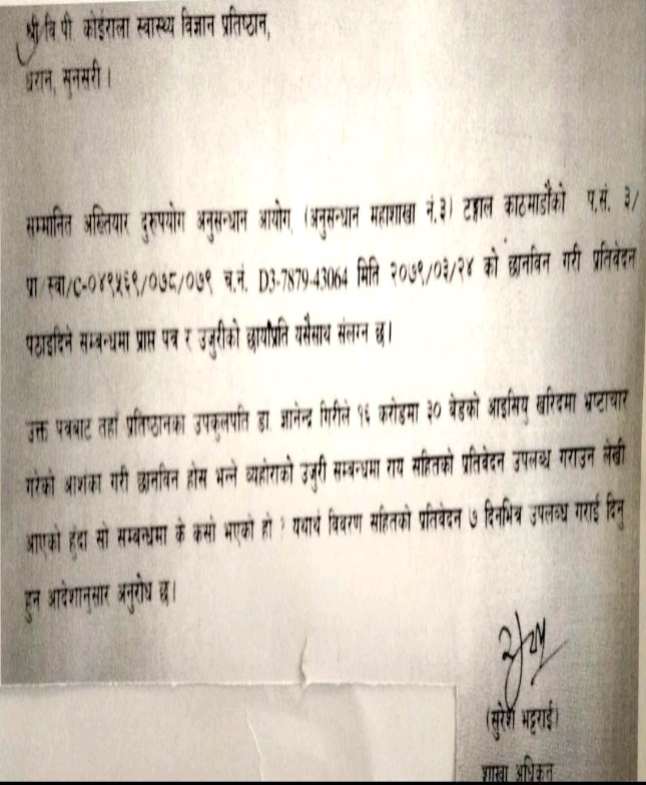 श्री बि.पी. कोईराला स्वास्थ्य विज्ञान प्रतिष्ठान,
धरान, सुनसरी ।
सम्मानित अख्तियार दुरुपयोग अनुसन्धान आयोग, (अनुसन्धान महाशाखा नं.३) टङ्गाल काठमाडौंको प.सं. ३/
प्रा/स्वा/C-०४९५६९/०७८/०७९ च.नं. D3-7879-43064 मिति २०७९/०३/२४ को छानविन गरी प्रतिवेदन
पठाइदिने सम्बन्धमा प्राप्त पत्र र उजुरीको छायाँप्रति यसैसाथ संलग्न छ।
उक्त पत्रबाट तहाँ प्रतिष्ठानका उपकुलपति डा. ज्ञानेन्द्र गिरीले १६ करोडमा ३० बेडको आइसियु खरिदमा भ्रष्टाचार
गरेको आशंका गरी छानविन होस भन्ने व्यहोराको उजुरी सम्बन्धमा राय सहितको प्रतिवेदन उपलब्ध गराउन लेखी
आएको हुंदा सो सम्बन्धमा के कसो भएको हो ? यथार्थ विवरण सहितको प्रतिवेदन ७ दिनभित्र उपलब्ध गराई दिनु
हुन आदेशानुसार अनुरोध छ।
(सुरेश भट्टराई)
शाखा अधिकृत